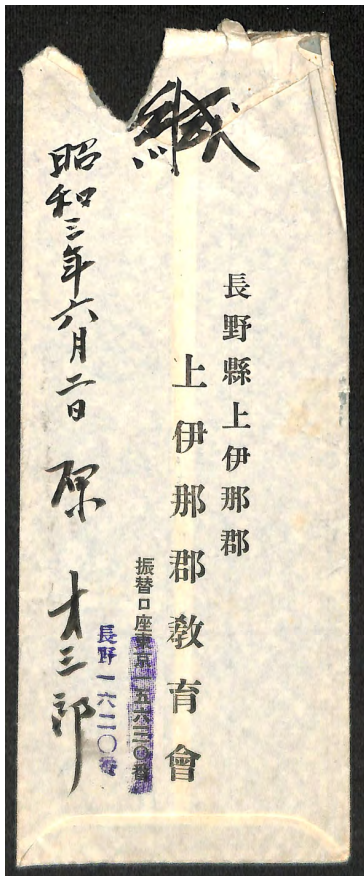 緘
長野縣上伊那郡
上伊那郡教育會
振替口座東京一五六三〇番
長野一六二〇番
昭和三年六月二日 原 才三郎